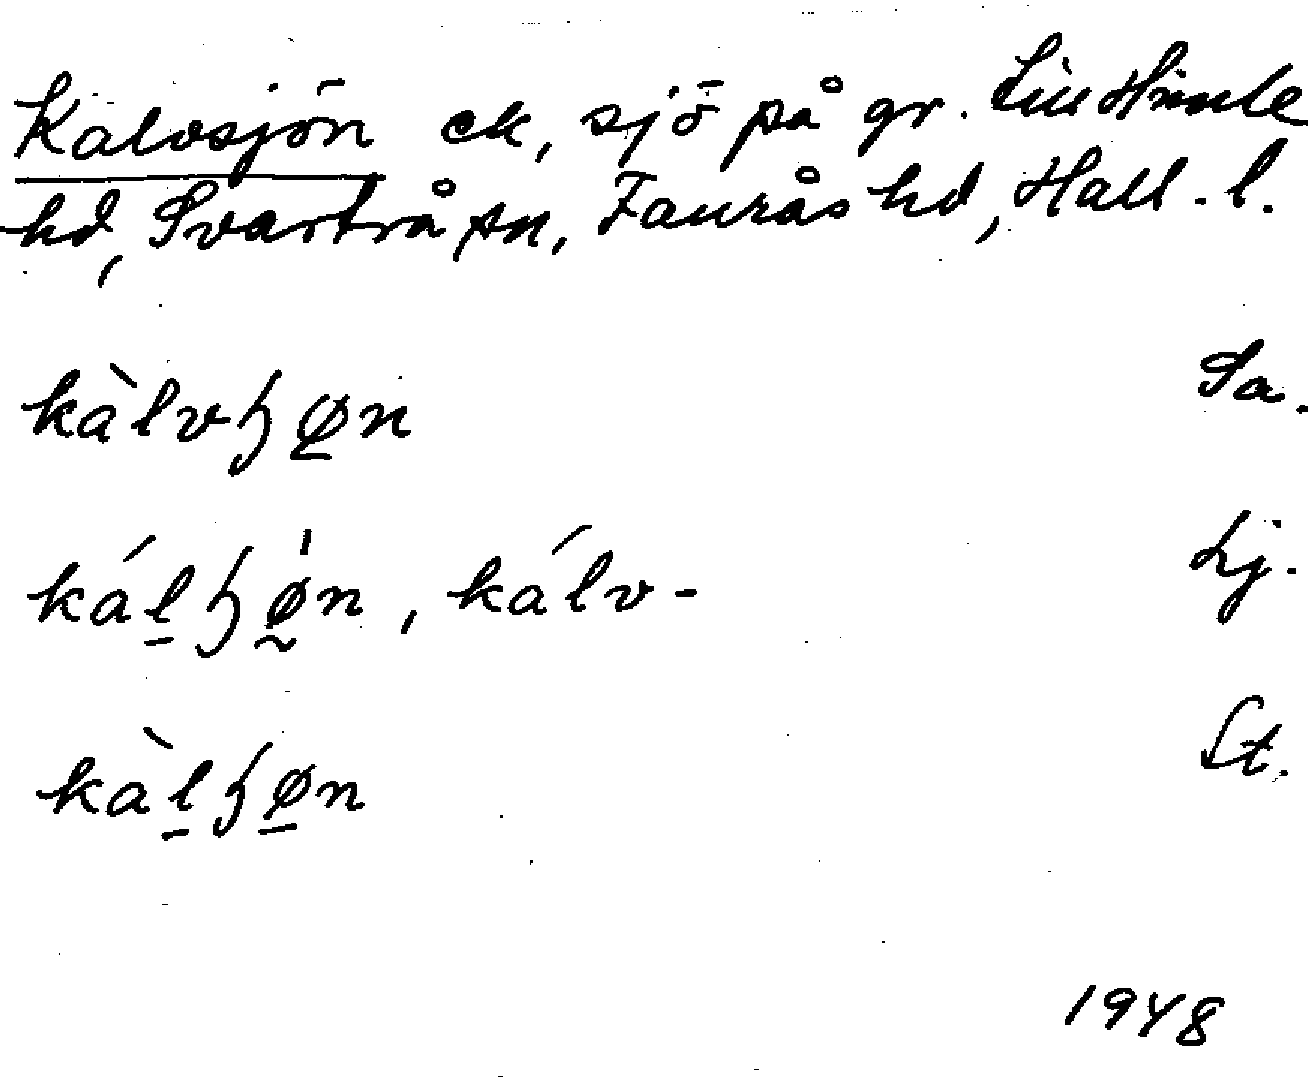 Kalvsjön ek, sjö på gr. till Himle
hd, Svartrå sn, Faurås hd, Hall. l.
kàlvɧø̱n Sa.
káḻɧǿ̰n, kálv- Lj.
kàḻɧø̱n St.
1948